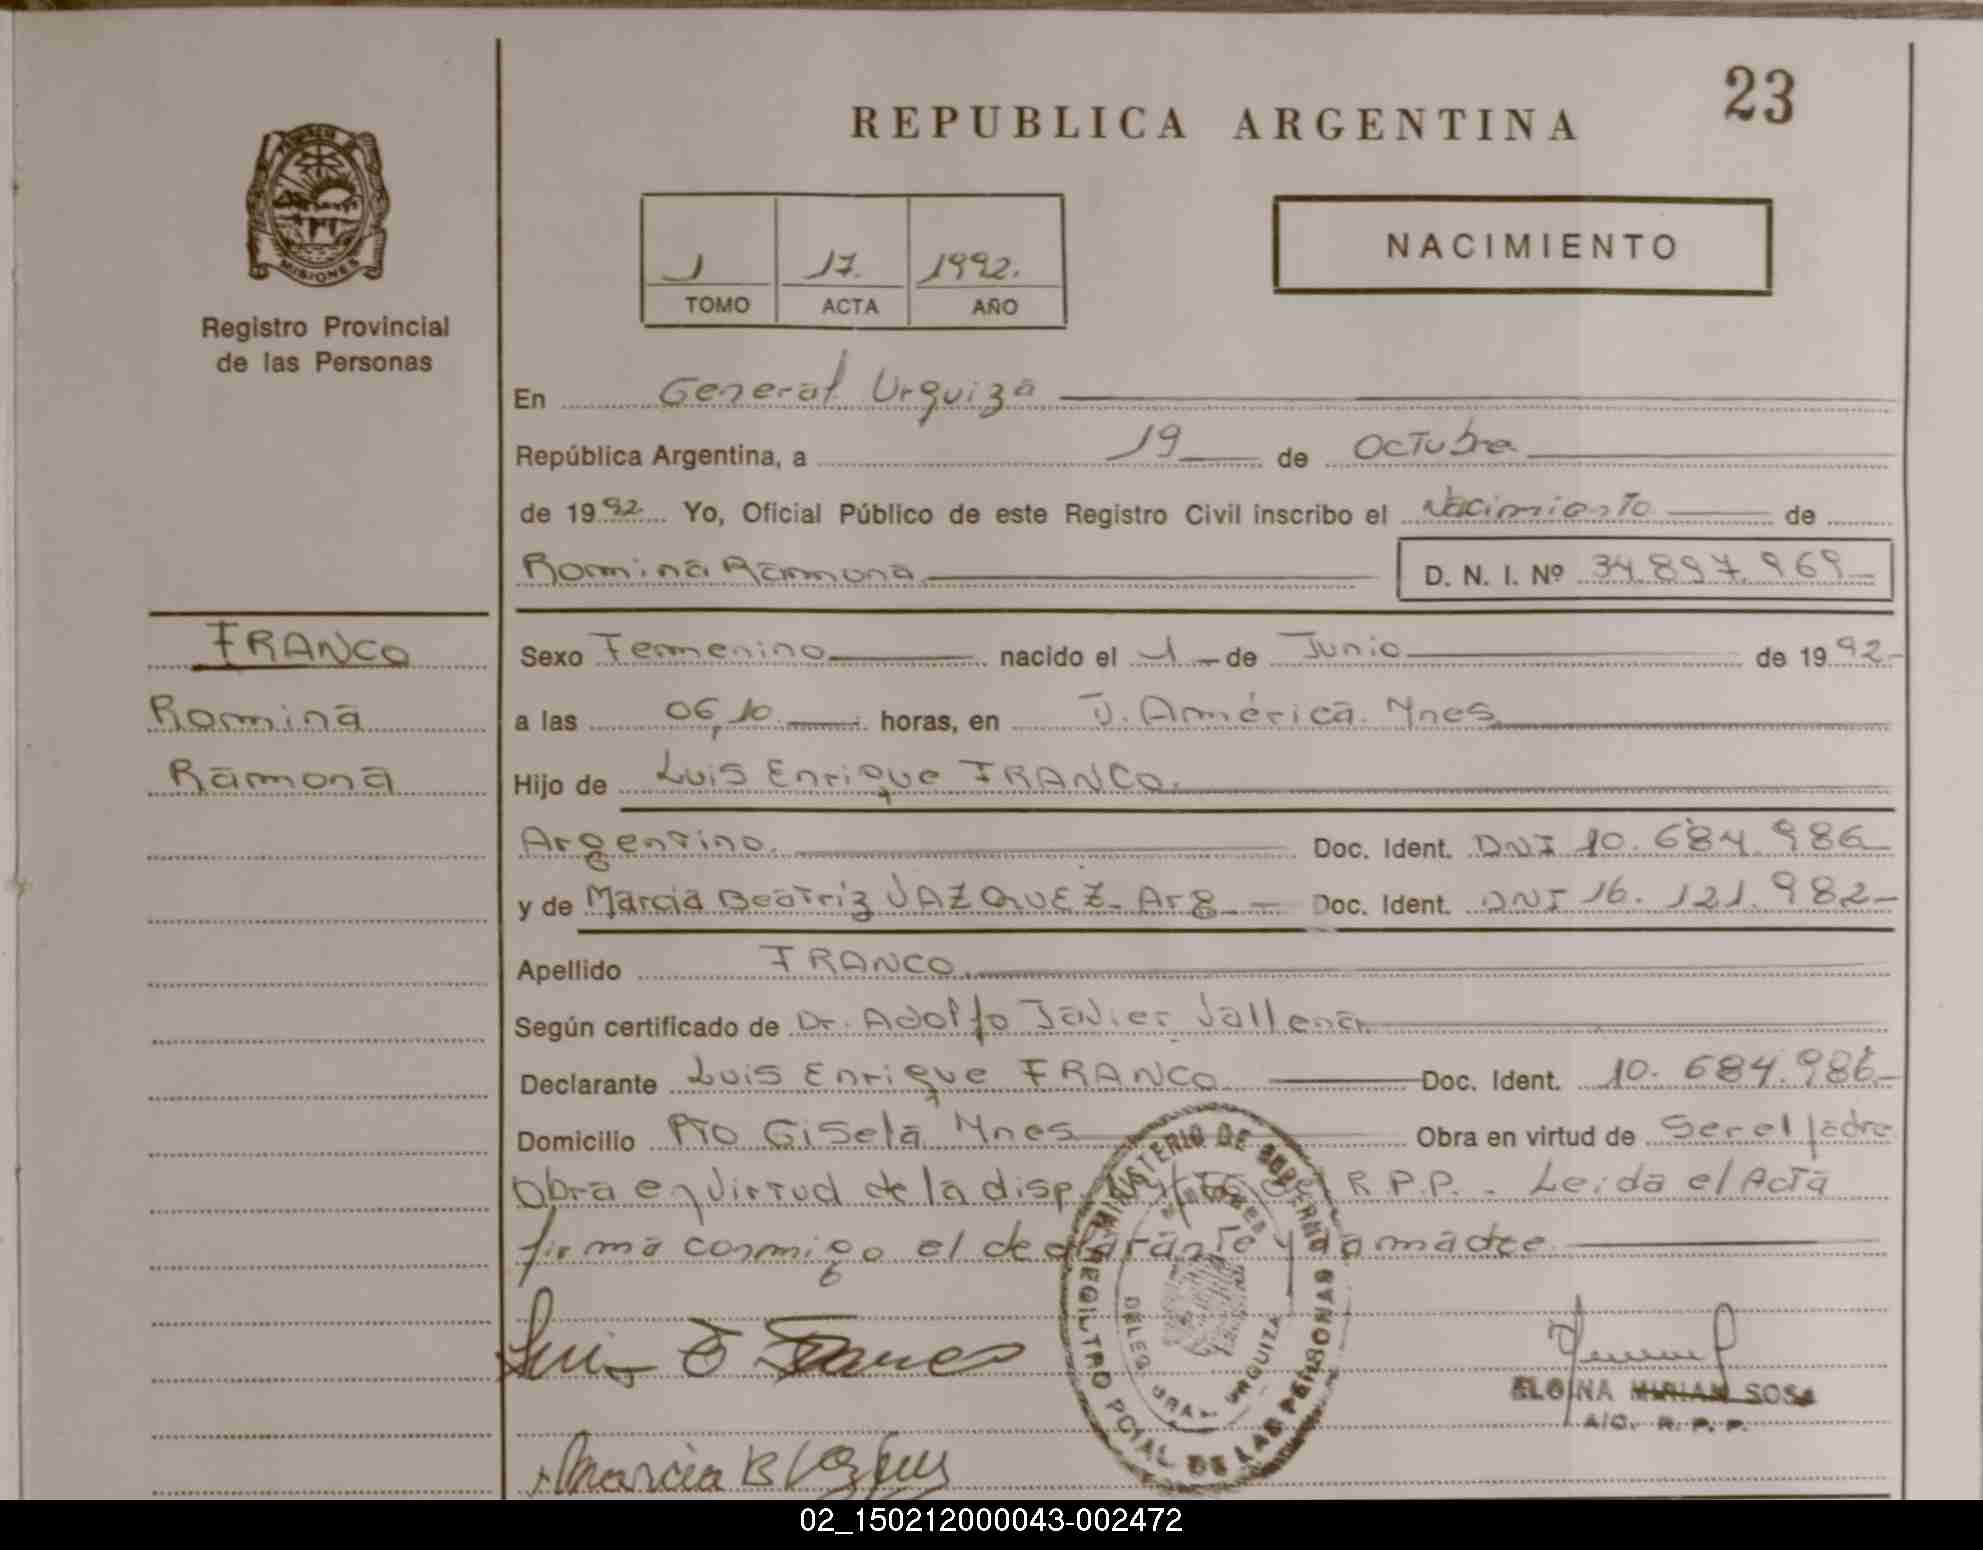 23
REPUBLICA ARGENTINA
MISIONES
Registro Provincial
de las Personas
1 17. 1992.
TOMO ACTA AÑO
NACIMIENTO
En General Urquiza
República Argentina, a 19 de Octubre
de 1992 Yo, Oficial Público de este Registro Civil inscribo el Nacimiento de
Romina Ramona D. N. I. Nº 34.897.969
FRANCO
Romina
Ramona
Sexo Femenino nacido el 1 de Junio de 1992
a las 06,10 horas, en J. América Mnes
Hijo de Luis Enrique FRANCO.
Argentino. Doc. Ident. DNI 10.684.986
y de Marcia Beatriz VAZQUEZ - Arg - Doc. Ident. DNI 16.121.982
Apellido FRANCO
Según certificado de Dr. Adolfo Javier
Declarante Luis Enrique FRANCO Doc. Ident. 10.684.986
Domicilio Pto Gisela Mnes Obra en virtud de Ser el padre
Obra en virtud de la disp. R.P.P. . Leida el Acta
firma conmigo el declarante y la madre
Luis E Franco
Marcia B Vazquez
MINISTERIO DE GOBIERNO
REGILTRO PCIAL DE LAS PERSONAS
DELEG. GRAL URQUIZA
MIRIAN SOSA
A/C. R. P. P.
02_150212000043-002472